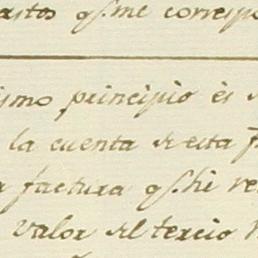 astos q.e me corresp
ismo principio es
la cuenta de esta f
factura q.e hi re
Valor del tercio